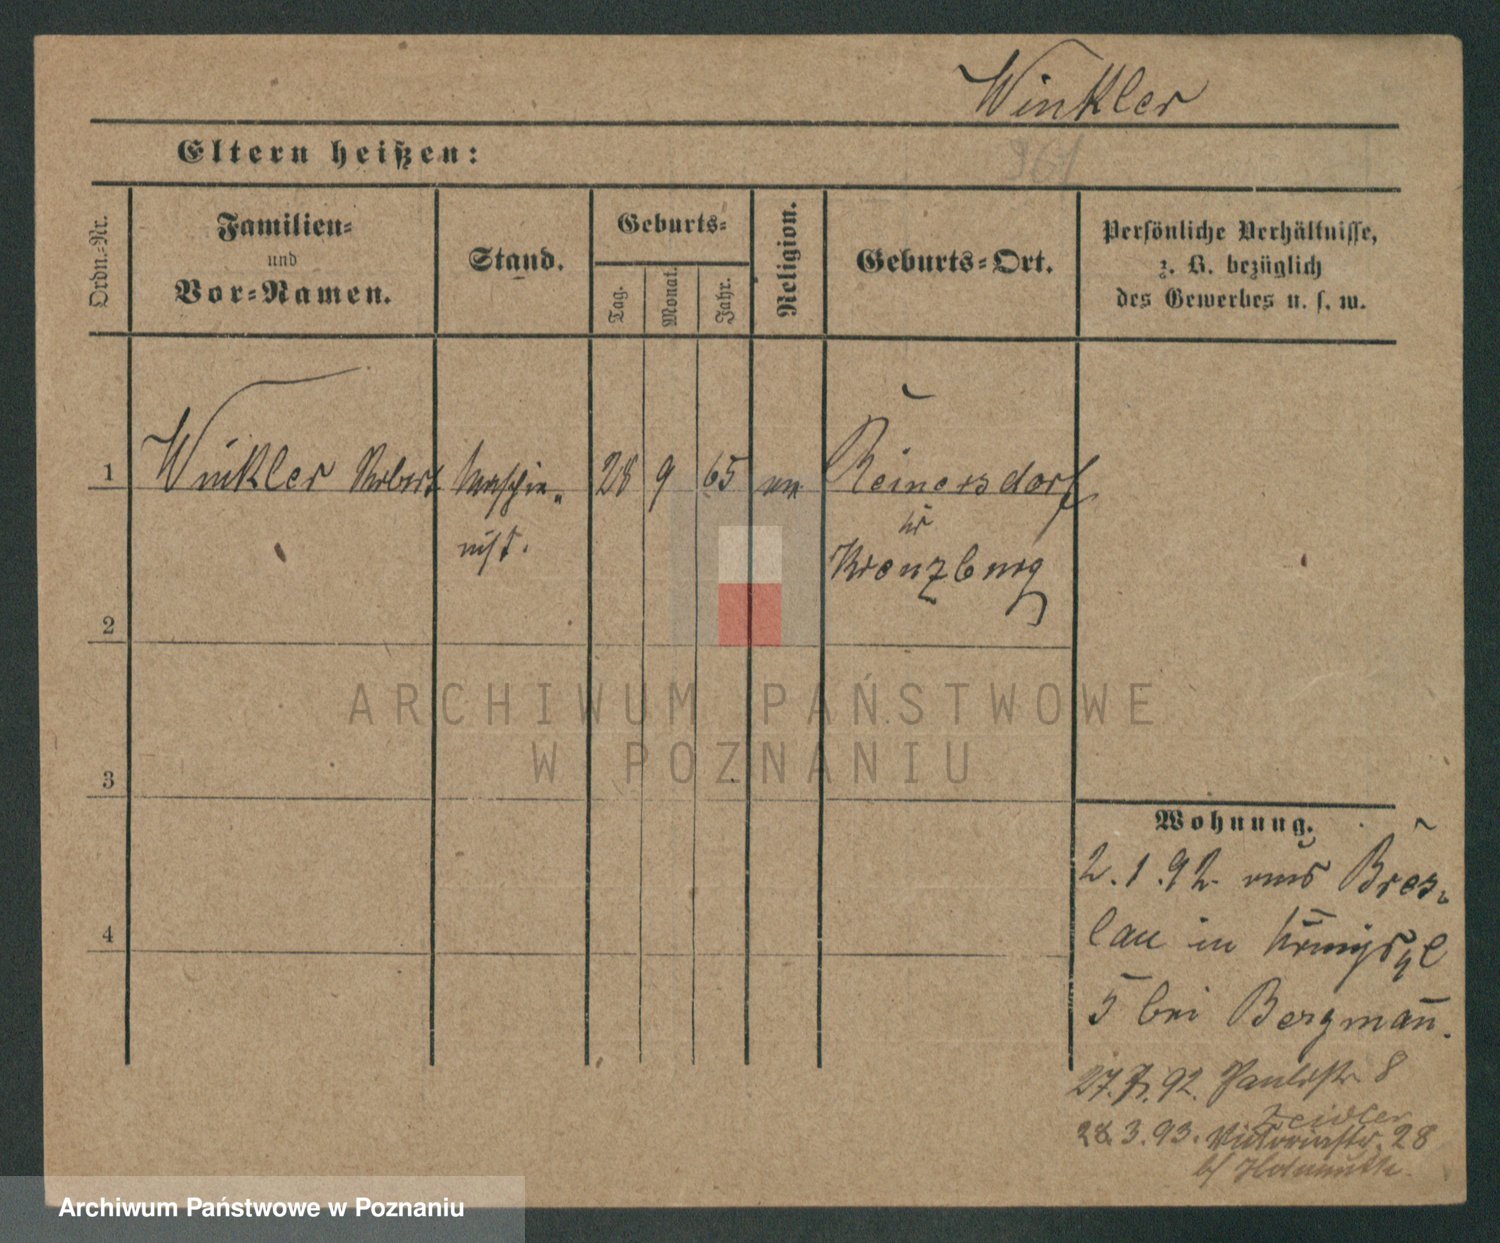 Winkler
Eltern heißen:
Ordn.-Nr.
Familien-
und
Vor-Namen.
Stand.
Geburts-
Tag.
Monat.
Jahr.
Religion.
Geburts-Ort.
Persönliche Verhältnisse,
z. B. bezüglich
des Gewerbes u. s. w.
1
Winkler Robert
Maschi-
nist.
28 9 65
Reinersdorf
Kreuzburg
2
3
4
Wohnung.
2.1.92. aus Bres-
lau in Königspl
5 bei Bergmann.
27.7.92. Paulistr 8
Zeidler
28.3.93. Victoriastr. 28
b/
ARCHIWUM PAŃSTWOWE
W POZNANIU
Archiwum Państwowe w Poznaniu